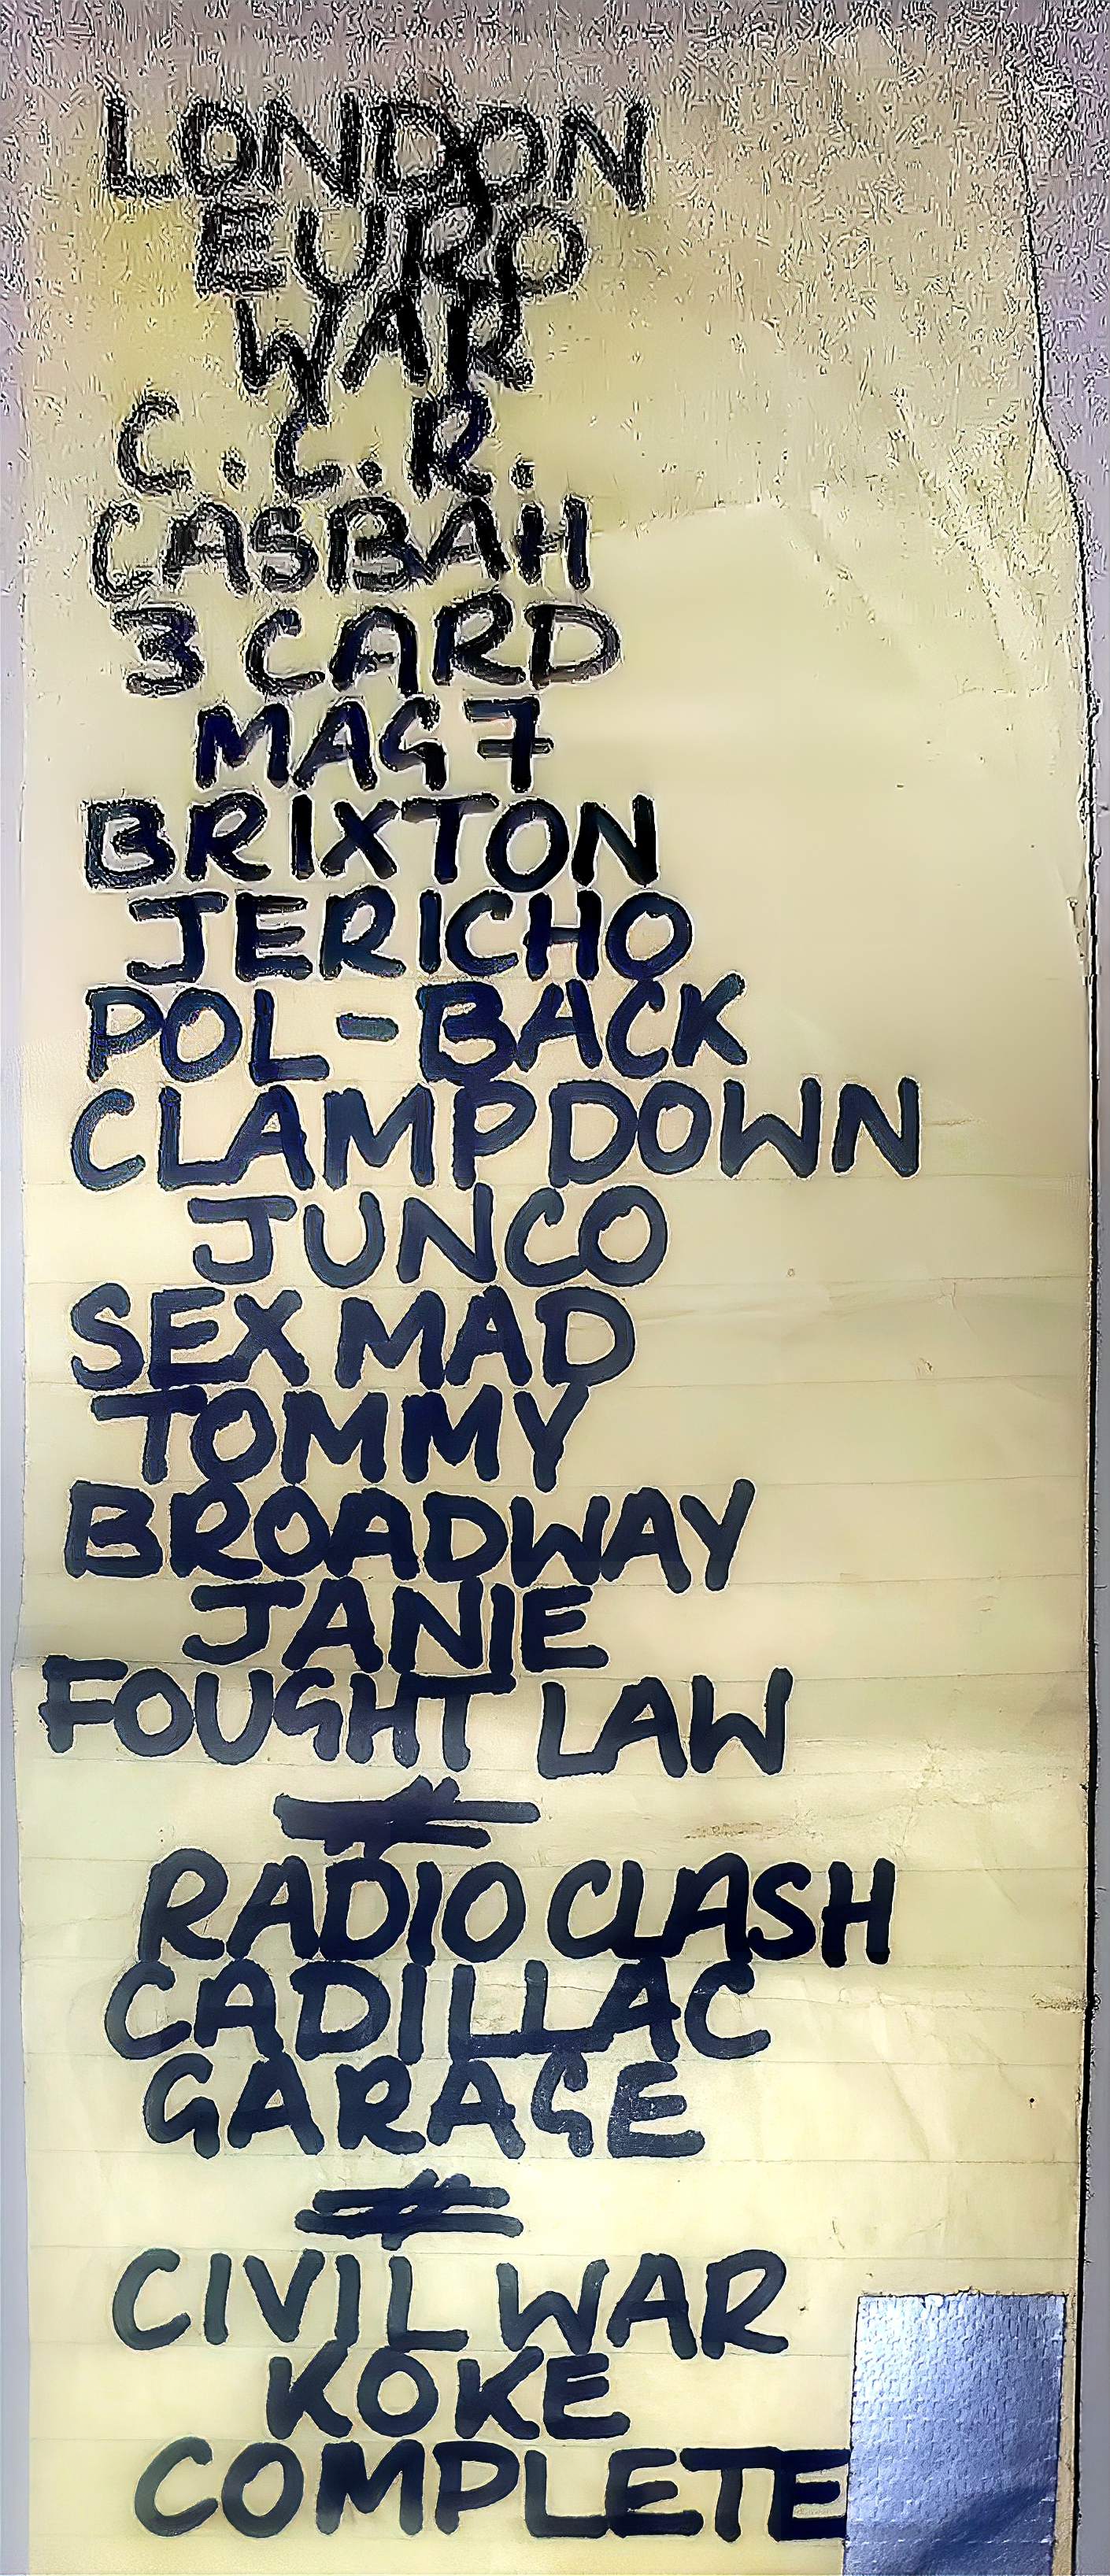 LONDON
EURO
WAR
C.C.R.
CASBAH
3 CARD
MAG 7
BRIXTON
JERICHO
POL-BACK
CLAMPDOWN
JUNCO
SEX MAD
TOMMY
BROADWAY
JANIE
FOUGHT LAW
RADIO CLASH
CADILLAC
GARAGE
CIVIL WAR
KOKE
COMPLETE